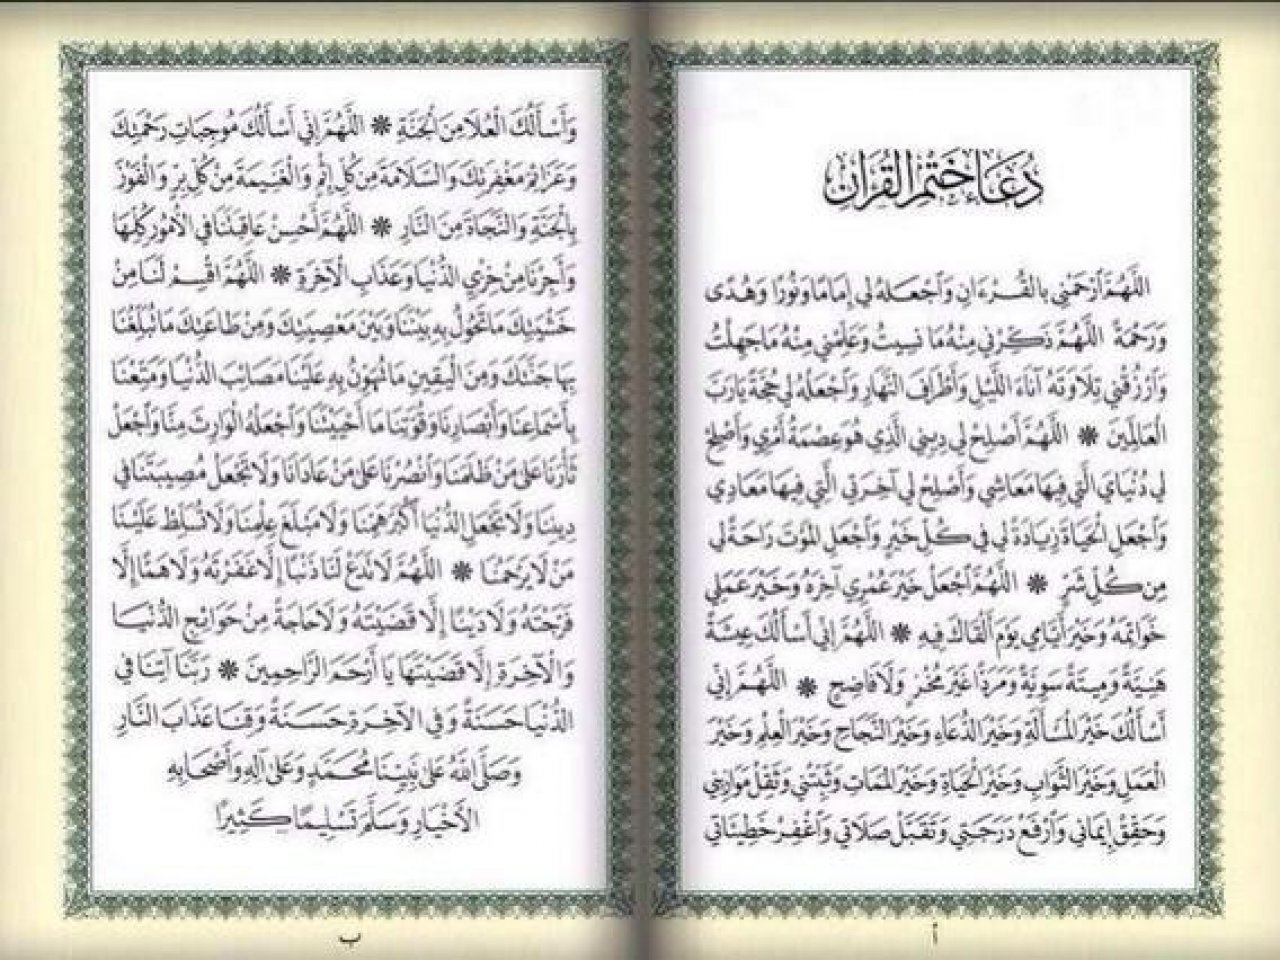 دُعَاءُ خَتْمِ الْقُرْآنِ
اللَّهُمَّ ٱرْحَمْنِي بِالقُرْءَانِ وَٱجْعَلهُ لِي إِمَامًا وَنُورًا وَهُدًى
وَرَحْمَةً اللَّهُمَّ ذَكِّرْنِي مِنْهُ مَا نَسِيتُ وَعَلِّمْنِي مِنْهُ مَا جَهِلْتُ
وَٱرْزُقْنِي تِلَاوَتَهُ آنَاءَ اللَّيْلِ وَأَطْرَافَ النَّهَارِ وَٱجْعَلْهُ لِي حُجَّةً يَارَبَّ
العَالَمِينَ * اللَّهُمَّ أَصْلِحْ لِي دِينِي الَّذِي هُوَ عِصْمَةُ أَمْرِي وَأَصْلِحْ
لِي دُنْيَايَ الَّتِي فِيهَا مَعَاشِي وَأَصْلِحْ لِي آخِرَتِي الَّتِي فِيهَا مَعَادِي
وَٱجْعَلِ الْحَيَاةَ زِيَادَةً لِي فِي كُلِّ خَيْرٍ وَٱجْعَلِ المَوْتَ رَاحَةً لِي
مِن كُلِّ شَرٍّ * اللَّهُمَّ ٱجْعَلْ خَيْرَ عُمْرِي آخِرَهُ وَخَيْرَ عَمَلِي
خَوَاتِمَهُ وَخَيْرَ أَيَّامِي يَوْمَ أَلْقَاكَ فِيهِ * اللَّهُمَّ إِنِّي أَسْأَلُكَ عِيشَةً
هَنِيَّةً وَمِيتَةً سَوِيَّةً وَمَرَدًّا غَيْرَ مُخْزٍ وَلَا فَاضِحٍ * اللَّهُمَّ إِنِّي
أَسْأَلُكَ خَيْرَ المَسْأَلَةِ وَخَيْرَ الدُّعَاءِ وَخَيْرَ النَّجَاحِ وَخَيْرَ العِلْمِ وَخَيْرَ
العَمَلِ وَخَيْرَ الثَّوَابِ وَخَيْرَ الحَيَاةِ وَخَيْرَ المَمَاتِ وَثَبِّتْنِي وَثَقِّلْ مَوَازِينِي
وَحَقِّقْ إِيمَانِي وَٱرْفَعْ دَرَجَتِي وَتَقَبَّلْ صَلَاتِي وَٱغْفِرْ خَطِيئَاتِي
أ
وَأَسْأَلُكَ الْعُلَا مِنَ الْجَنَّةِ * اللَّهُمَّ إِنِّي أَسْأَلُكَ مُوجِبَاتِ رَحْمَتِكَ
وَعَزَائِمَ مَغْفِرَتِكَ وَالسَّلَامَةَ مِن كُلِّ إِثْمٍ وَالْغَنِيمَةَ مِنْ كُلِّ بِرٍّ وَالْفَوْزَ
بِالْجَنَّةِ وَالنَّجَاةَ مِنَ النَّارِ * اللَّهُمَّ أَحْسِنْ عَاقِبَتَنَا فِي الأُمُورِ كُلِّهَا
وَأَجِرْنَا مِنْ خِزْيِ الدُّنْيَا وَعَذَابِ الْآخِرَةِ * اللَّهُمَّ اقْسِمْ لَنَا مِنْ
خَشْيَتِكَ مَا تَحُولُ بِهِ بَيْنَنَا وَبَيْنَ مَعْصِيَتِكَ وَمِنْ طَاعَتِكَ مَا تُبَلِّغُنَا
بِهَا جَنَّتَكَ وَمِنَ الْيَقِينِ مَا تُهَوِّنُ بِهِ عَلَيْنَا مَصَائِبَ الدُّنْيَا وَمَتِّعْنَا
بِأَسْمَاعِنَا وَأَبْصَارِنَا وَقُوَّتِنَا مَا أَحْيَيْتَنَا وَٱجْعَلْهُ الْوَارِثَ مِنَّا وَٱجْعَلْ
ثَأْرَنَا عَلَى مَنْ ظَلَمَنَا وَٱنْصُرْنَا عَلَى مَنْ عَادَانَا وَلَا تَجْعَلْ مُصِيبَتَنَا فِي
دِينِنَا وَلَا تَجْعَلِ الدُّنْيَا أَكْبَرَ هَمِّنَا وَلَا مَبْلَغَ عِلْمِنَا وَلَا تُسَلِّطْ عَلَيْنَا
مَنْ لَا يَرْحَمُنَا * اللَّهُمَّ لَا تَدَعْ لَنَا ذَنْبًا إِلَّا غَفَرْتَهُ وَلَا هَمًّا إِلَّا
فَرَّجْتَهُ وَلَا دَيْنًا إِلَّا قَضَيْتَهُ وَلَا حَاجَةً مِنْ حَوَائِجِ الدُّنْيَا
وَالْآخِرَةِ إِلَّا قَضَيْتَهَا يَا أَرْحَمَ الرَّاحِمِينَ * رَبَّنَا آتِنَا فِي
الدُّنْيَا حَسَنَةً وَفِي الآخِرَةِ حَسَنَةً وَقِنَا عَذَابَ النَّارِ
وَصَلَّى اللهُ عَلَى نَبِيِّنَا مُحَمَّدٍ وَعَلَى آلِهِ وَأَصْحَابِهِ
الأَخْيَارِ وَسَلَّمَ تَسْلِيمًا كَثِيرًا
ب